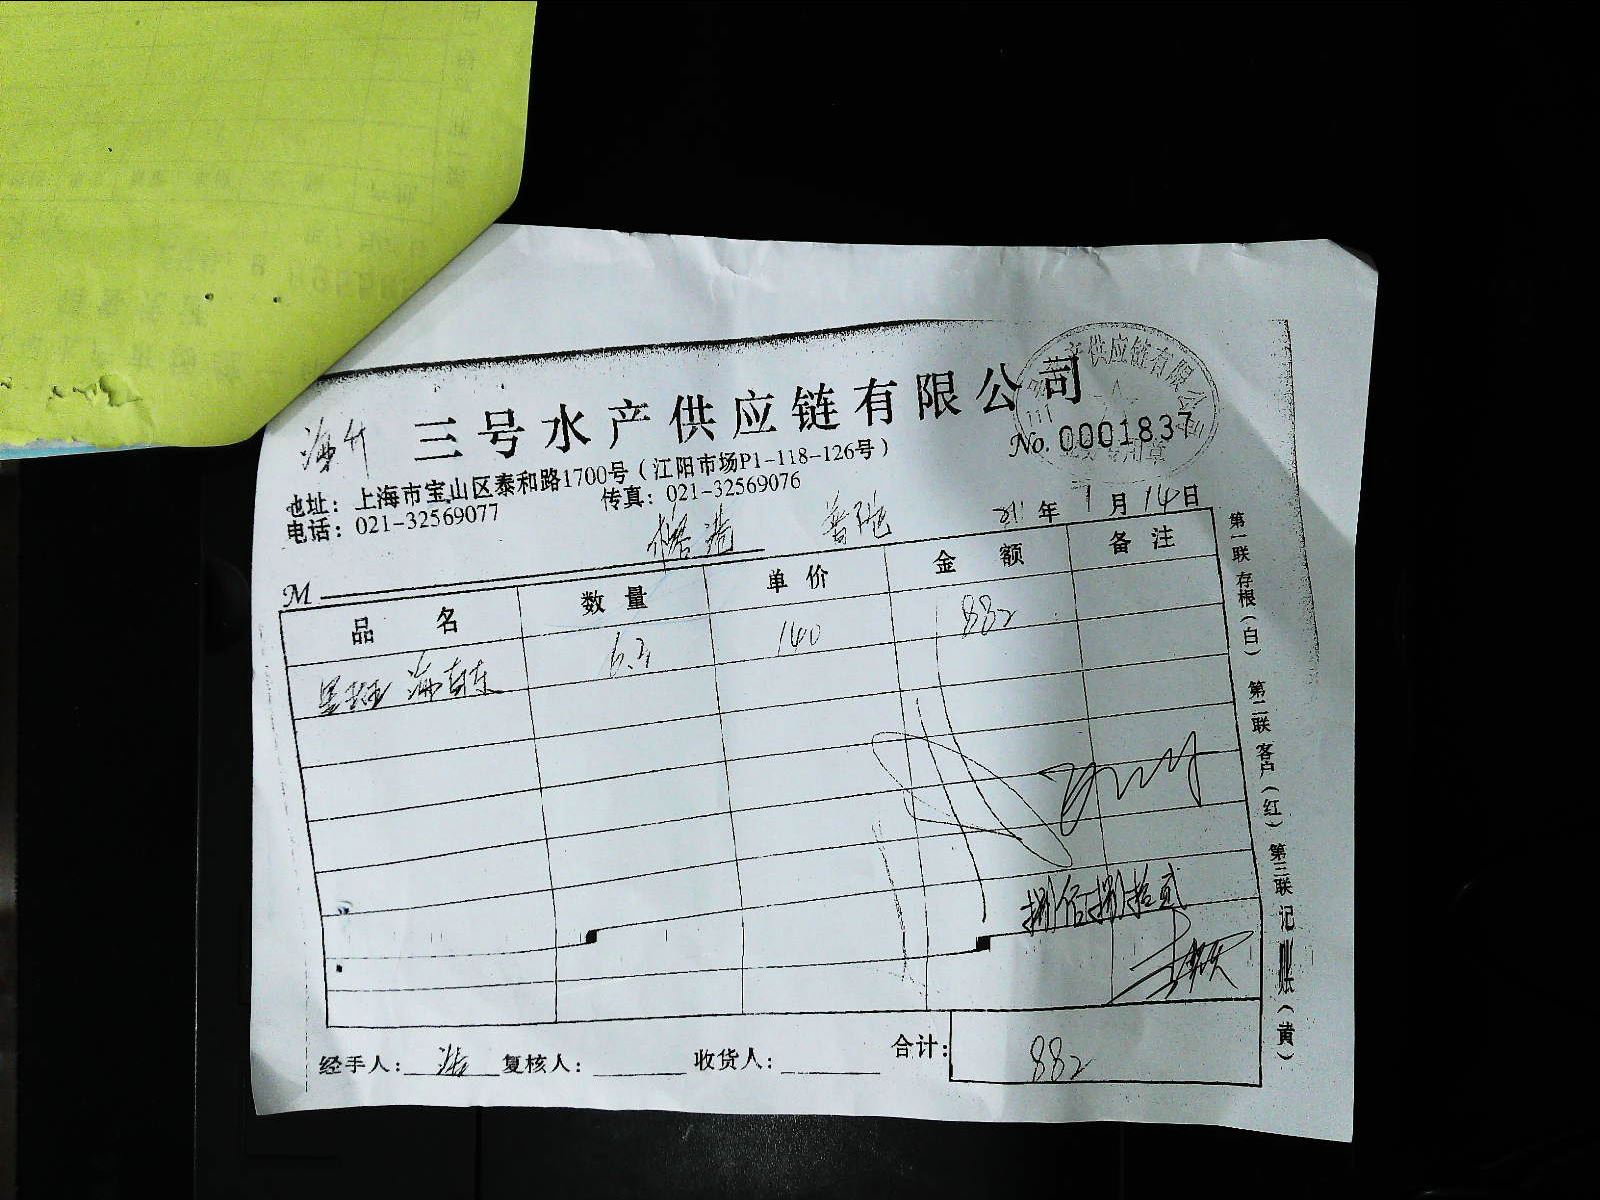 三号水产供应链有限公司
No. 0001837
地址：上海市宝山区泰和路1700号（江阳市场P1-118-126号）
电话：021-32569077 传真：021-32569076
年 1 月 14 日
M
品 名 数 量 单 价 金 额 备 注
6.3 140 882
捌佰捌拾贰
经手人： 复核人： 收货人： 合计： 882
第一联 存根（白） 第二联 客户（红） 第三联 记账（黄）
产供应链有限公司